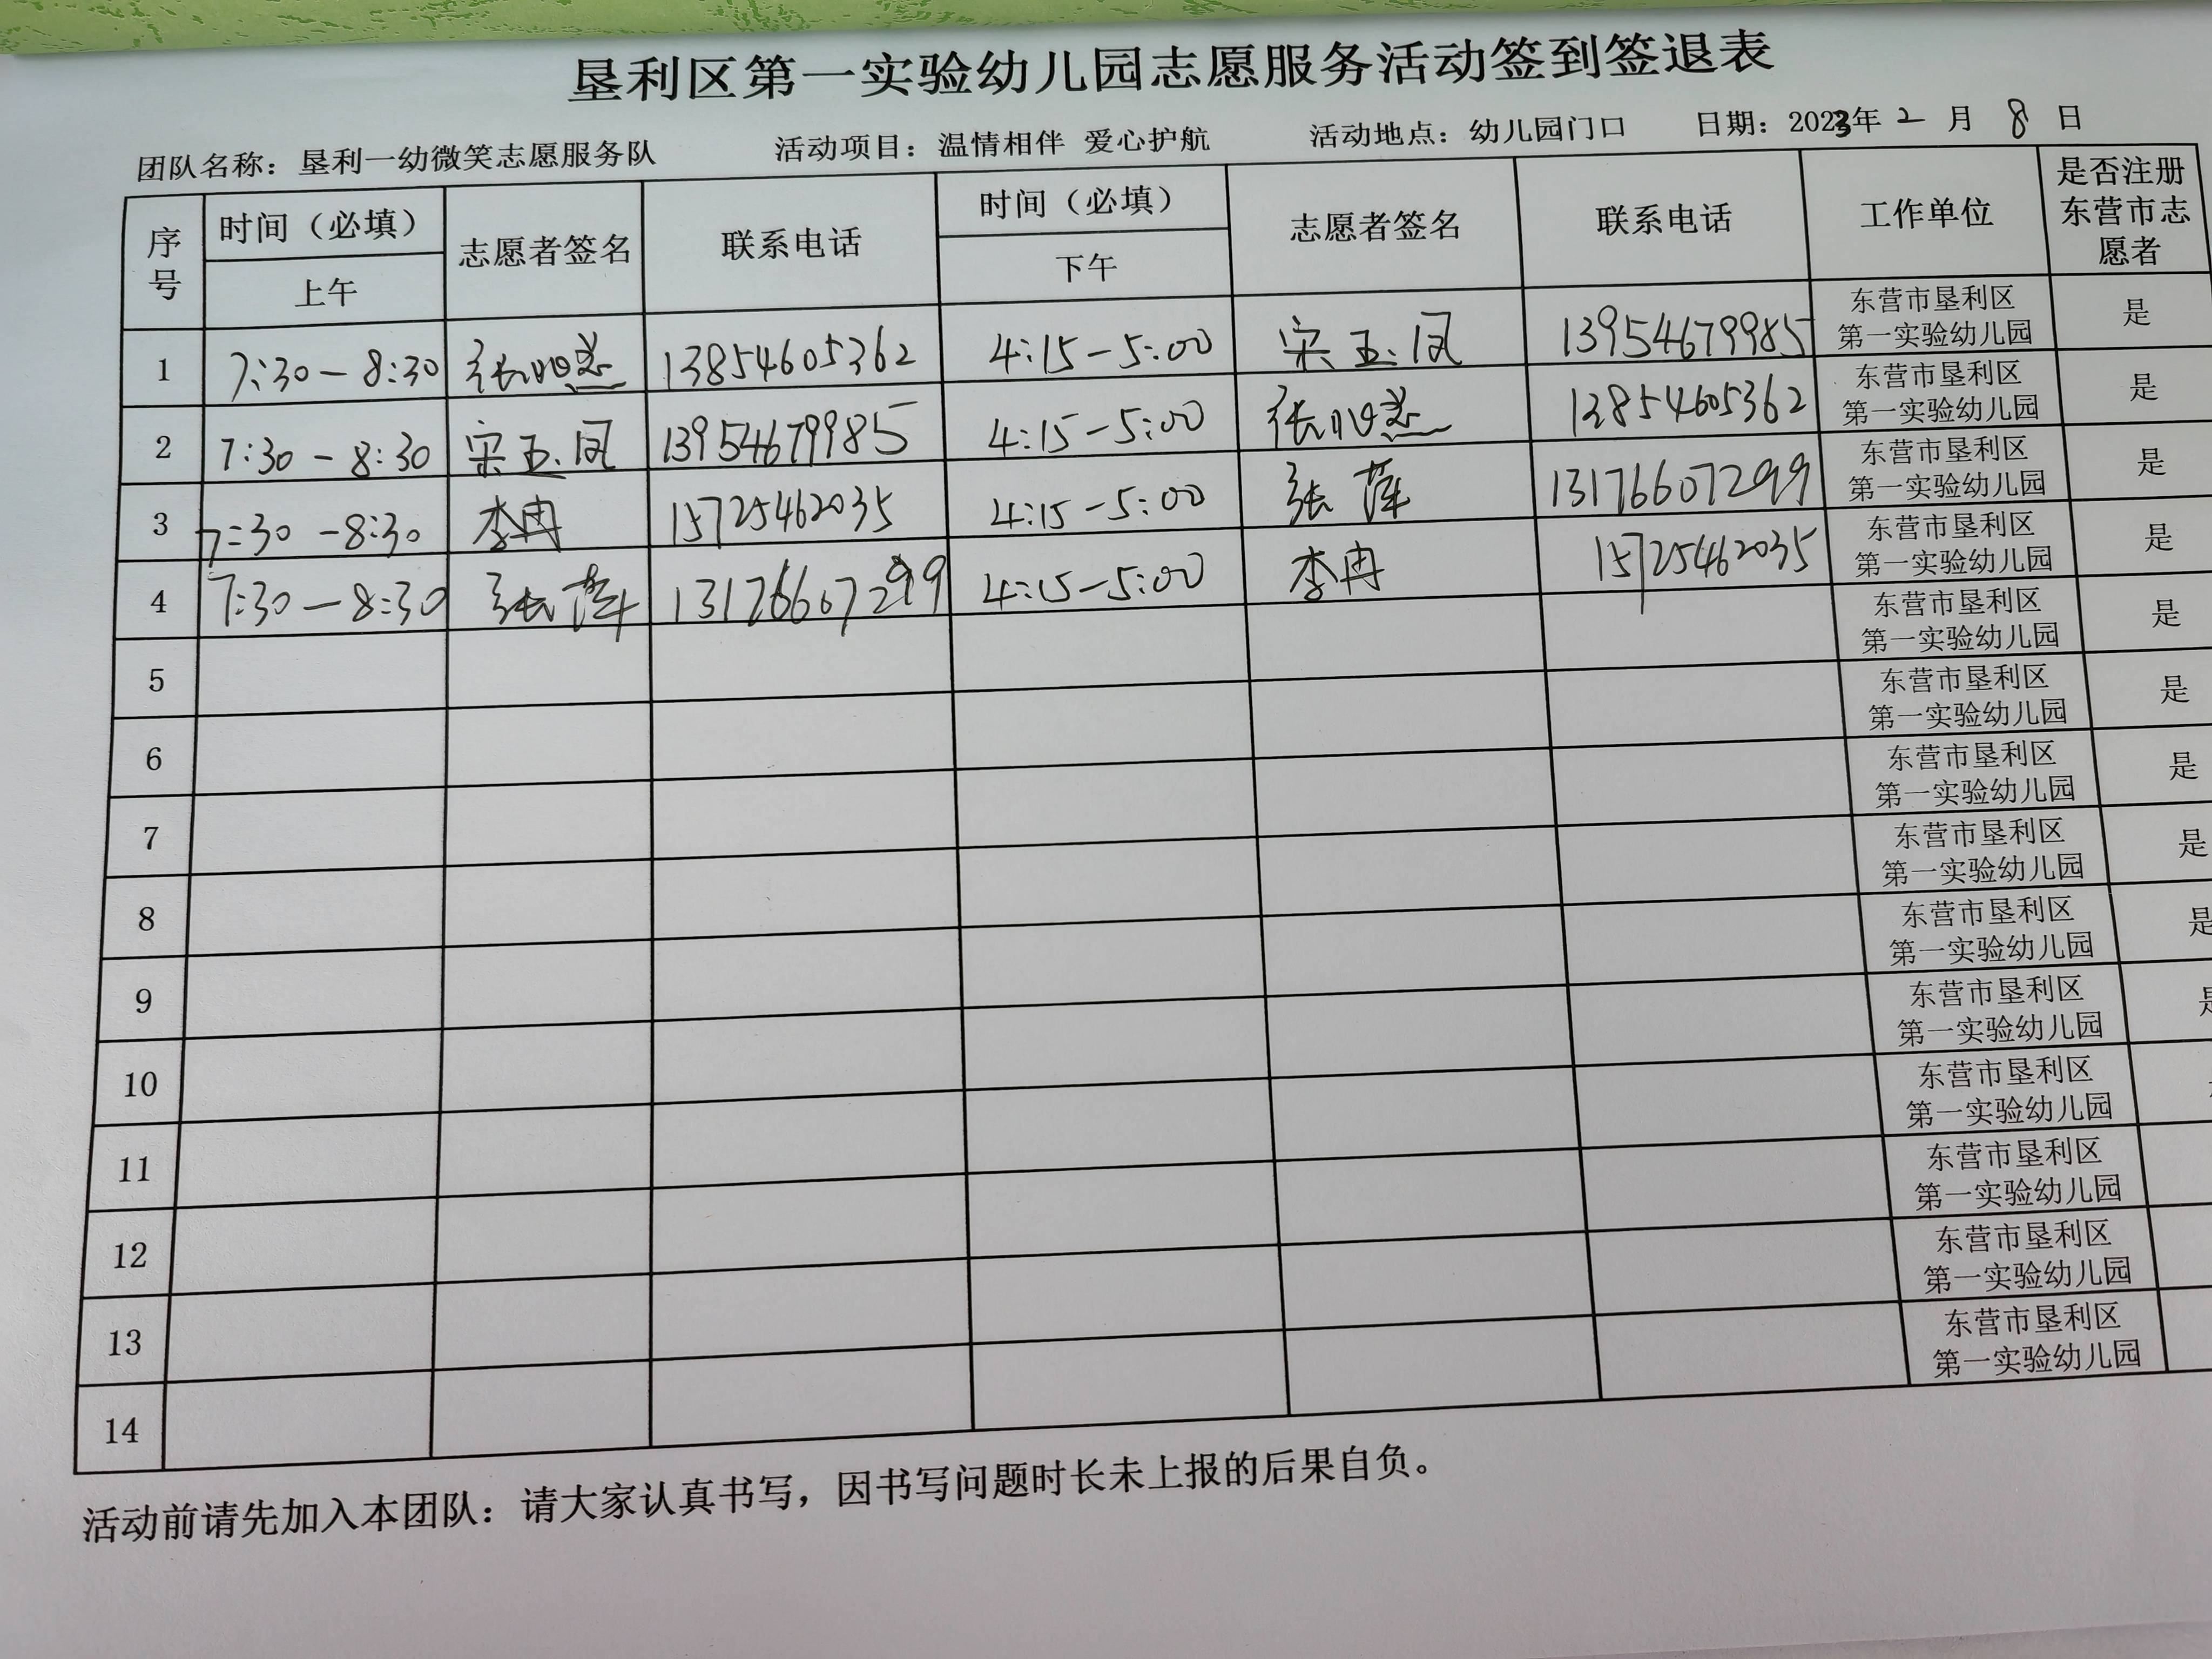 垦利区第一实验幼儿园志愿服务活动签到签退表
团队名称：垦利一幼微笑志愿服务队 活动项目：温情相伴 爱心护航 活动地点：幼儿园门口 日期：2023年 2 月 8 日
序号 时间（必填） 上午 志愿者签名 联系电话 时间（必填） 下午 志愿者签名 联系电话 工作单位 是否注册东营市志愿者
1 7:30－8:30 张 13854605362 4:15－5:00 宋玉凤 13954679985 东营市垦利区第一实验幼儿园 是
2 7:30－8:30 宋玉凤 13954679985 4:15－5:00 张 13854605362 东营市垦利区第一实验幼儿园 是
3 7:30－8:30 李冉 15725462035 4:15－5:00 张萍 13176607299 东营市垦利区第一实验幼儿园 是
4 7:30－8:30 张萍 13176607299 4:15－5:00 李冉 15725462035 东营市垦利区第一实验幼儿园 是
5 东营市垦利区第一实验幼儿园 是
6 东营市垦利区第一实验幼儿园 是
7 东营市垦利区第一实验幼儿园 是
8 东营市垦利区第一实验幼儿园 是
9 东营市垦利区第一实验幼儿园 是
10 东营市垦利区第一实验幼儿园 是
11 东营市垦利区第一实验幼儿园
12 东营市垦利区第一实验幼儿园
13 东营市垦利区第一实验幼儿园
14 东营市垦利区第一实验幼儿园
活动前请先加入本团队：请大家认真书写，因书写问题时长未上报的后果自负。